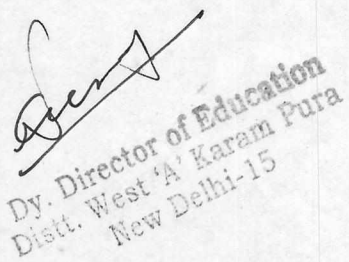 Dy. Director of Education
Distt. West 'A' Karam Pura
New Delhi-15